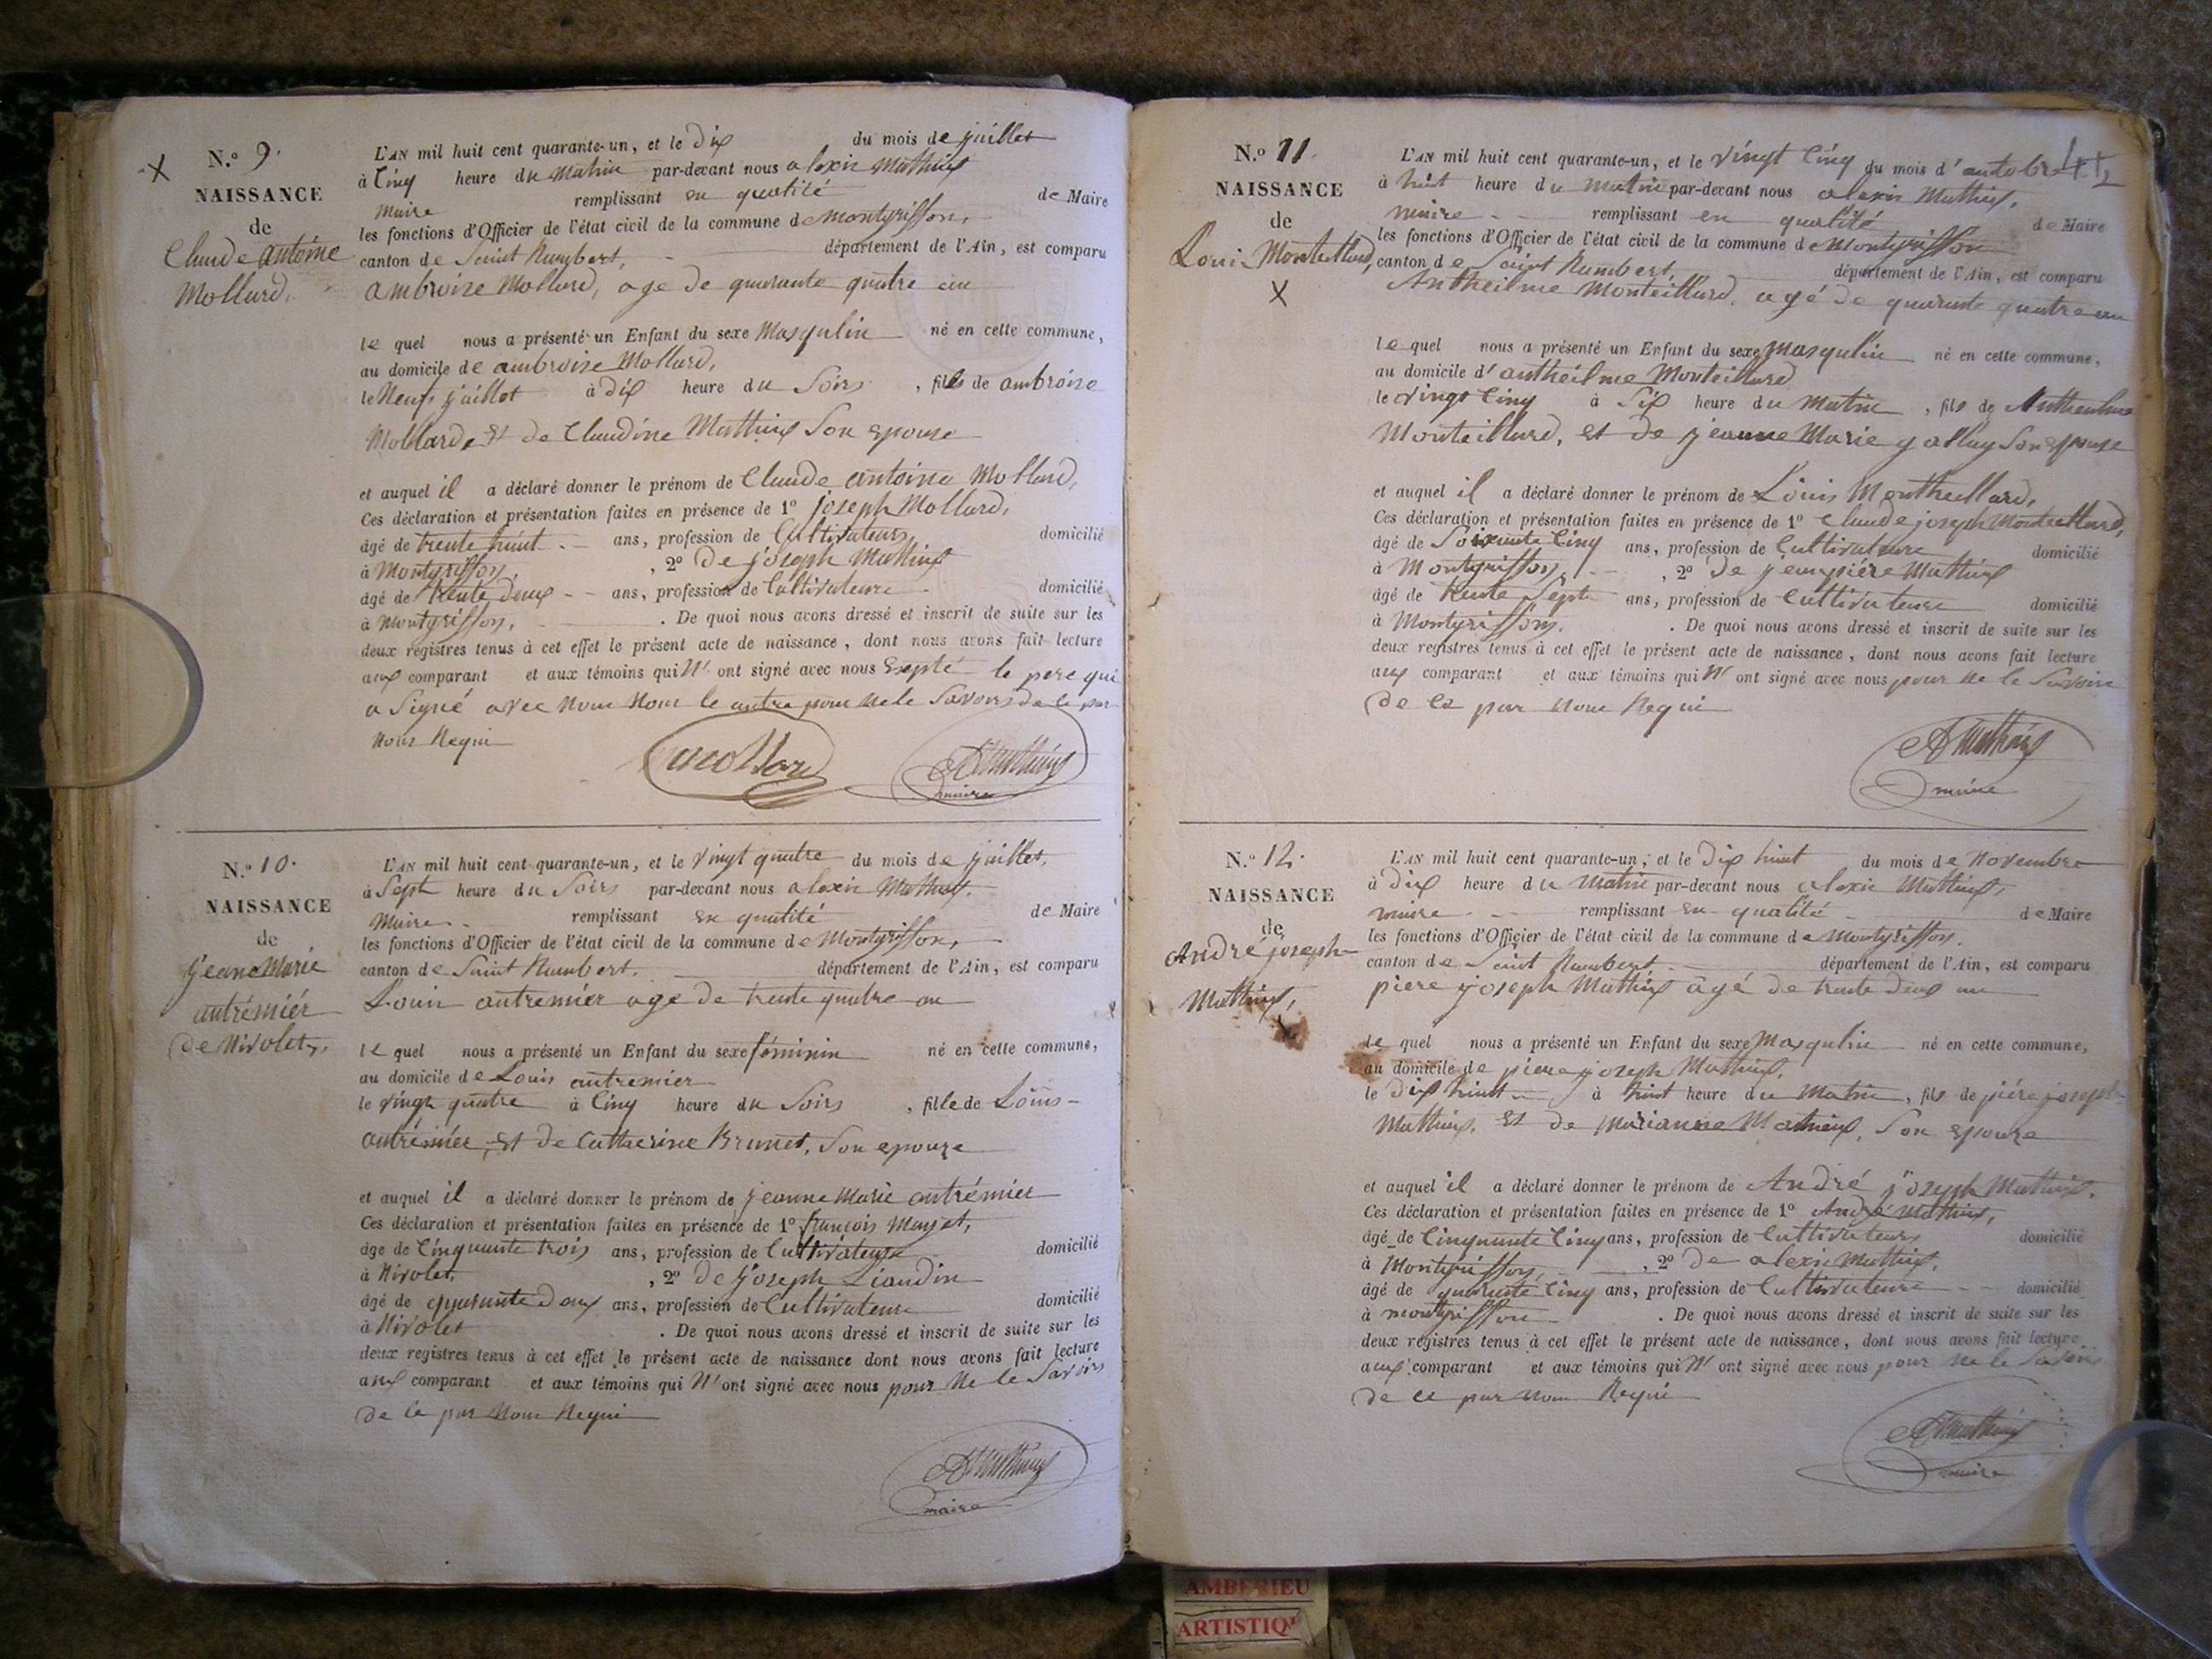 N.º 9.
NAISSANCE
de
Claude antoine
Mollard,
L'AN mil huit cent quarante-un, et le dix du mois de juillet
à Cinq heure du matin par-devant nous alexis Mathieux
maire remplissant en qualité de Maire
les fonctions d'Officier de l'état civil de la commune de montgriffon,
canton de Saint Rambert, département de l'Ain, est comparu
ambroise Mollard, age de quarante quatre an
le quel nous a présenté un Enfant du sexe Masqulin né en cette commune,
au domicile de ambroise Mollard,
le Neuf juillet à dix heure du Soirs, fils de ambroise
Mollard, et de Claudine Mathieux Son epouse
et auquel il a déclaré donner le prénom de Claude antoine Mollard,
Ces déclaration et présentation faites en présence de 1º joseph Mollard,
âgé de trente huit ans, profession de Cultivateurs domicilié
à Montgriffon, 2º De joseph Mathieux
âgé de trente deux ans, profession de Cultivateure domicilié
à Montgriffon, . De quoi nous avons dressé et inscrit de suite sur les
deux registres tenus à cet effet le présent acte de naissance, dont nous avons fait lecture
aux comparant et aux témoins qui N' ont signé avec nous Septé le pere qui
a Signé avec nous le autre pour ne le Savoirs de ce par
nous Requi
Mollard
AMathieux
maire
N.º 10.
NAISSANCE
de
jeane Marie
autrémiér
de Nivolet,
L'AN mil huit cent quarante-un, et le vingt quatre du mois de juillet,
à Sept heure du Soirs par-devant nous alexis Mathieux,
Maire remplissant en qualité de Maire
les fonctions d'Officier de l'état civil de la commune de Montgriffon,
canton de Saint Rambert. département de l'Ain, est comparu
Louis autremier age de trente quatre an
le quel nous a présenté un Enfant du sexe féminin né en cette commune,
au domicile de Louis autremier
le vingt quatre à Cinq heure du Soirs, fille de Louis
autrémier, et de Catherine Brunet, Son epouze
et auquel il a déclaré donner le prénom de jeanne Marie autrémier
Ces déclaration et présentation faites en présence de 1º françois
âgé de Cinquante trois ans, profession de Cultivateure domicilié
à Nivolet, 2º De joseph Liaudin
âgé de quarante deux ans, profession de Cultivateure domicilié
à Nivolet . De quoi nous avons dressé et inscrit de suite sur les
deux registres tenus à cet effet le présent acte de naissance dont nous avons fait lecture
aux comparant et aux témoins qui N' ont signé avec nous pour Ne le Savoirs
de ce par Nous Requi
AMathieux
maire
N.º 11.
NAISSANCE
de
Louis Monteillard,
L'AN mil huit cent quarante-un, et le vingt Cinq du mois d'
à huit heure du matin par-devant nous alexis Mathieux,
maire remplissant en qualité de Maire
les fonctions d'Officier de l'état civil de la commune de Montgriffon
canton de Saint Rambert, département de l'Ain, est comparu
Antheilme Monteillard, agé de quarante quatre an
le quel nous a présenté un Enfant du sexe Masqulin né en cette commune,
au domicile d'antheilme Monteillard
le vingt Cinq à Six heure du Matin, fils de Antheilme
Monteillard, et de jeanne Marie Son epouse
et auquel il a déclaré donner le prénom de Louis Montheillard,
Ces déclaration et présentation faites en présence de 1º Claude joseph Monteillard,
âgé de Soixante Cinq ans, profession de Cultivateure domicilié
à Montgriffon, 2º De jean piére Mathieux
âgé de trente Sept ans, profession de Cultivateure domicilié
à Montgriffon, . De quoi nous avons dressé et inscrit de suite sur les
deux registres tenus à cet effet le présent acte de naissance, dont nous avons fait lecture
aux comparant et aux témoins qui N' ont signé avec nous pour Ne le Savoire
de ce par Nous Requi
AMathieux
maire
N.º 12.
NAISSANCE
de
André joseph
Mathieux,
L'AN mil huit cent quarante-un, et le Dix huit du mois de Novembre
à dix heure du Matin par-devant nous alexis Mathieux,
maire remplissant en qualité de Maire
les fonctions d'Officier de l'état civil de la commune de Montgriffon.
canton de Saint Rambert département de l'Ain, est comparu
piere joseph Mathieux âgé de trente deux an
le quel nous a présenté un Enfant du sexe Masqulin né en cette commune,
au domicile de piere joseph Mathieux,
le dix huit à huit heure du Matin, fils de piére joseph
Mathieux, et de Marianne Mathieux, Son épouze
et auquel il a déclaré donner le prénom de André joseph Mathieux,
Ces déclaration et présentation faites en présence de 1º André Mathieux,
âgé de Cinquante Cinq ans, profession de Cultivateurs domicilié
à Montgriffon, 2º De alexis Mathieux,
âgé de quarante Cinq ans, profession de Cultivateure domicilié
à montgriffon . De quoi nous avons dressé et inscrit de suite sur les
deux registres tenus à cet effet le présent acte de naissance, dont nous avons fait lecture
aux comparant et aux témoins qui N' ont signé avec nous pour ne le Savoirs
de ce par nous Requi
AMathieux
maire
AMBERIEU
ARTISTIQU